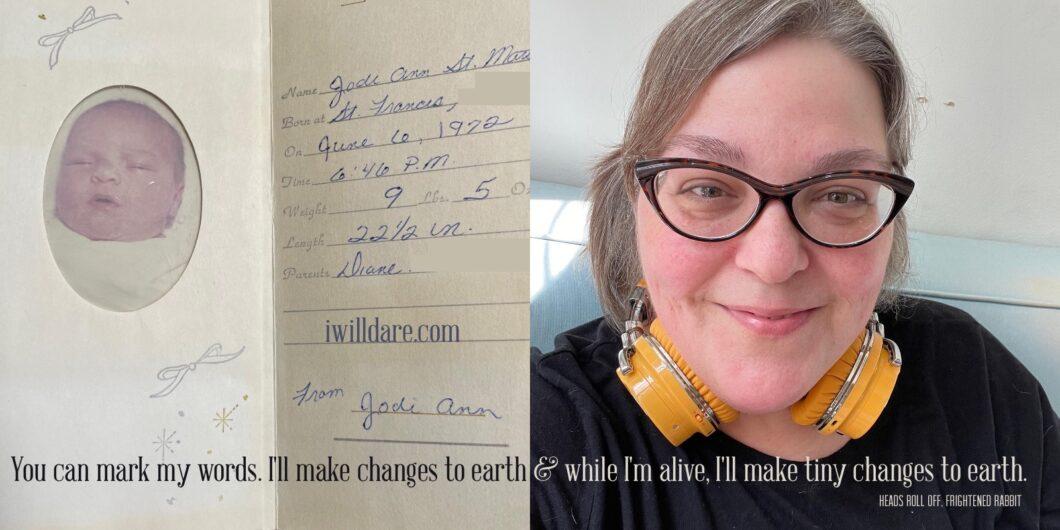 Name Jodi Ann St. Mar
Born at St. Francis,
On June 6, 1972
Time 6:46 P.M.
Weight 9 Lbs. 5 O
Length 22 1/2 in.
Parents Diane.
iwilldare.com
From Jodi Ann
You can mark my words. I'll make changes to earth & while I'm alive, I'll make tiny changes to earth.
HEADS ROLL OFF, FRIGHTENED RABBIT